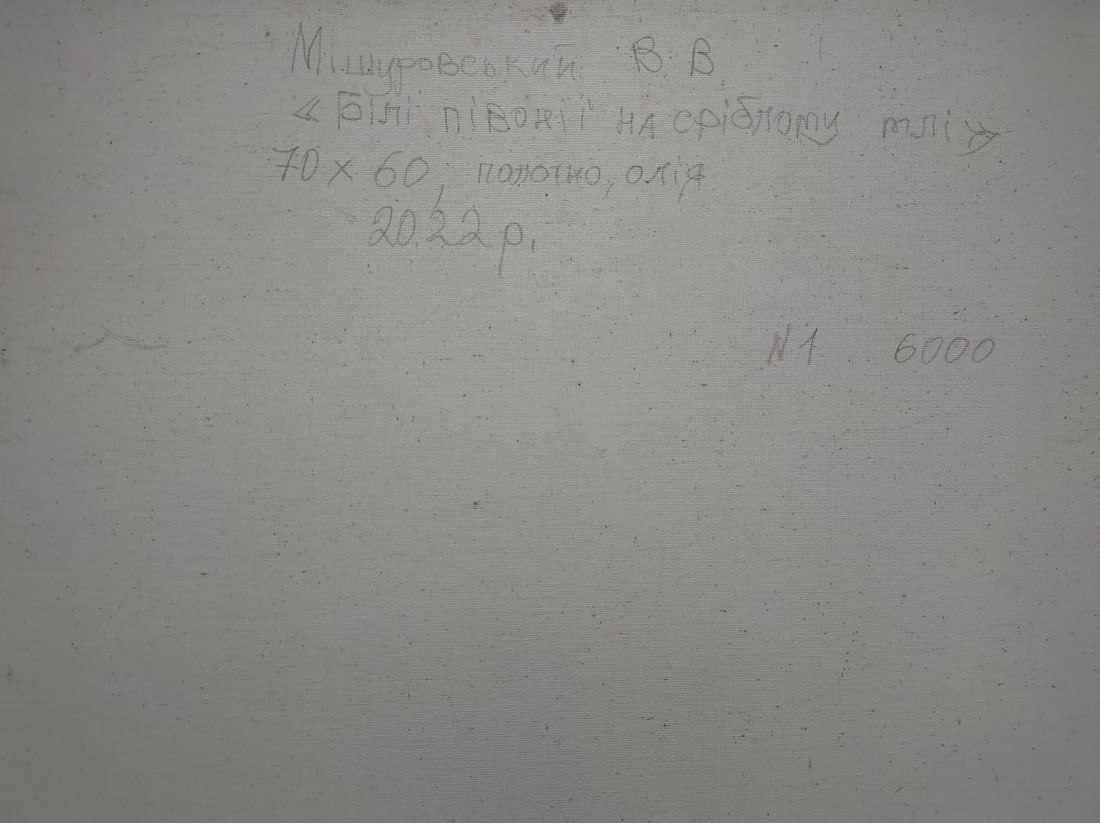 Мішуровський В. В.
«Білі півонії на срібному тлі»
70 х 60, полотно, олія
2022 р.
N1 6000